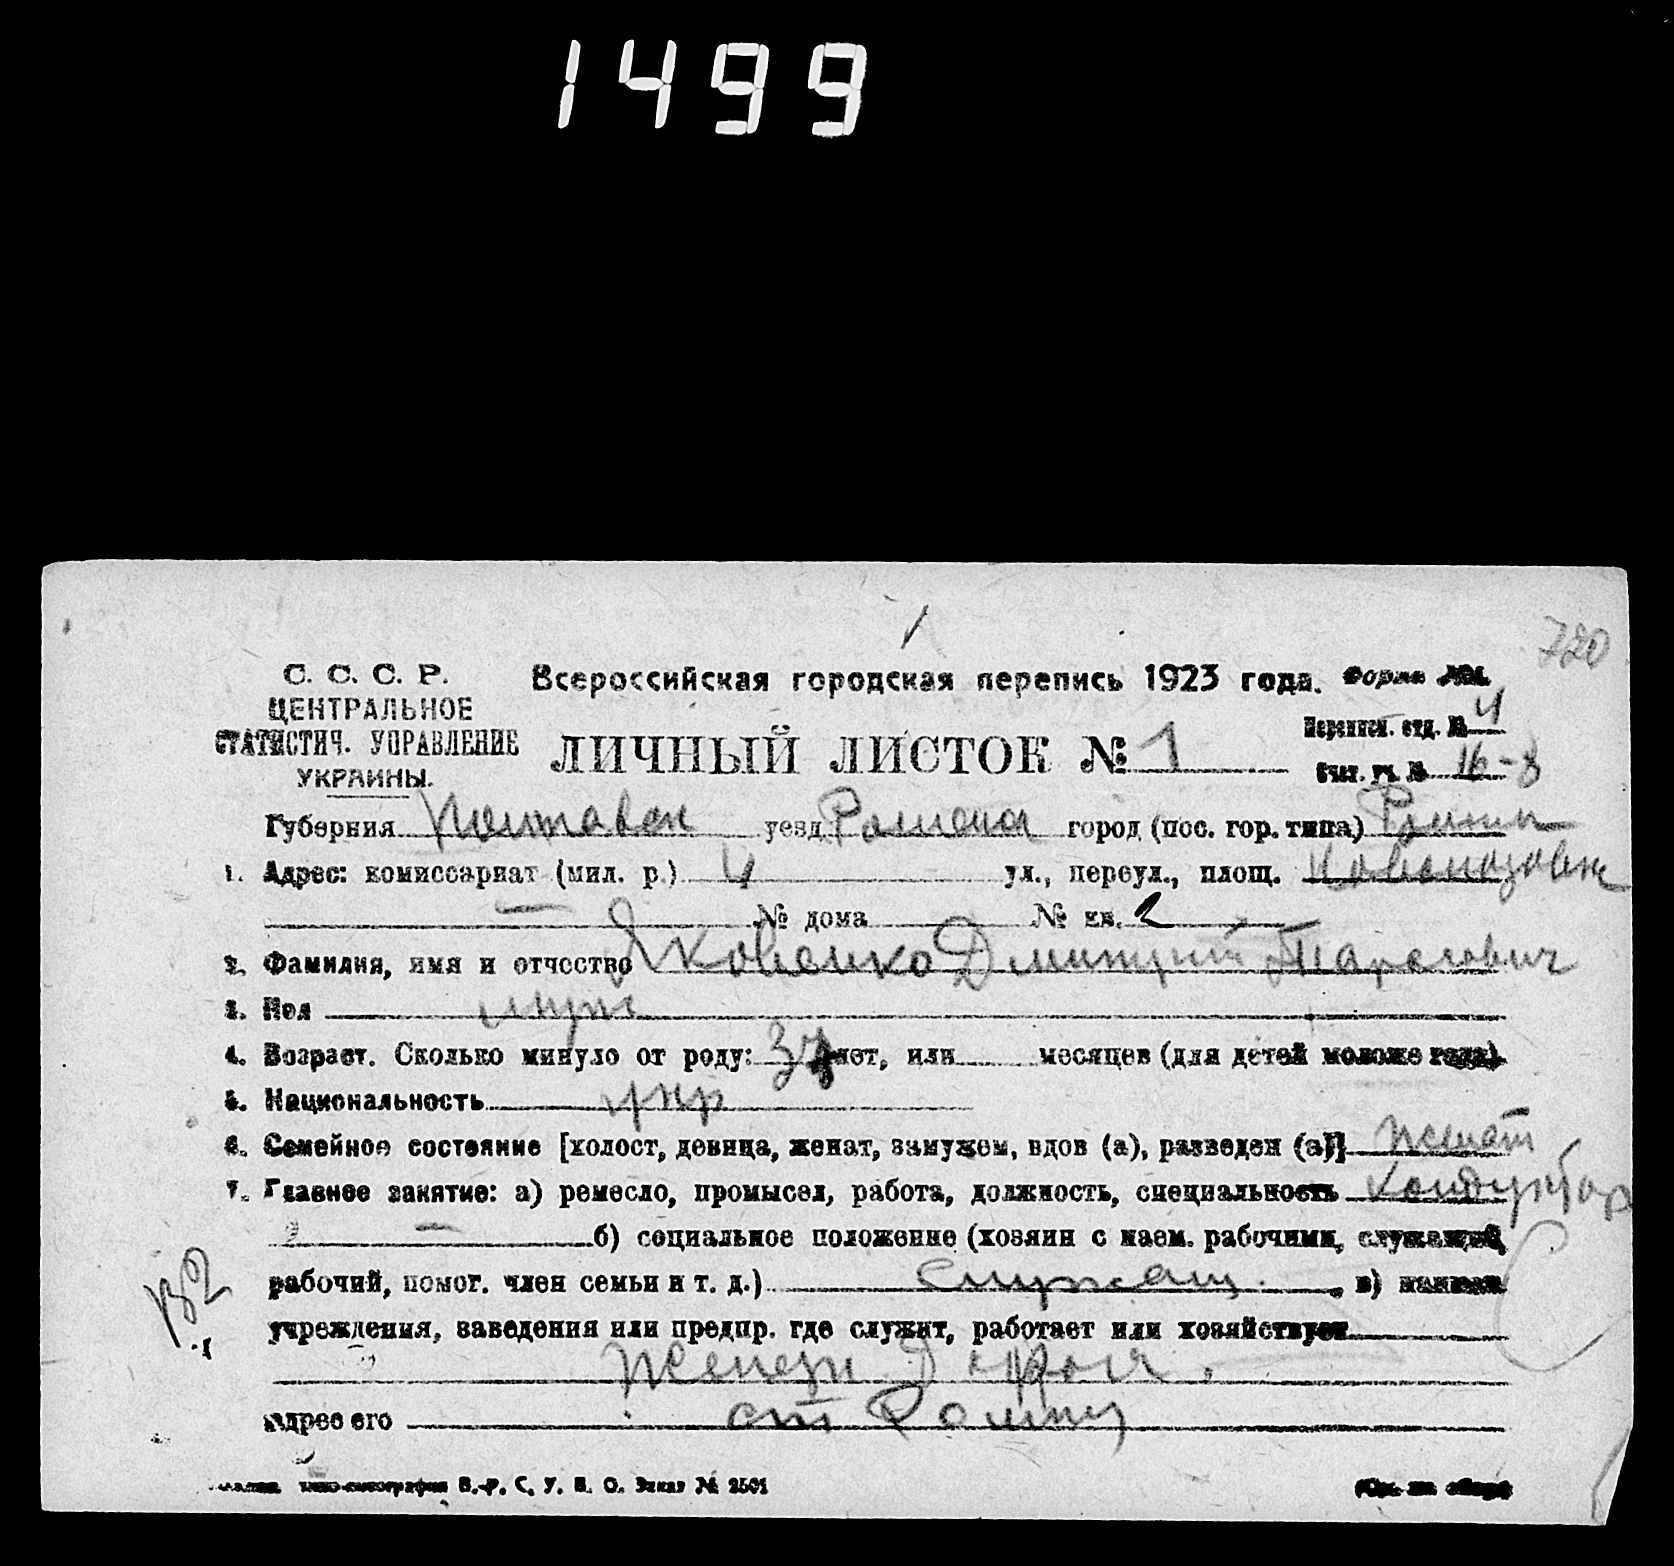 1499
720
С. С. С. Р.
ЦЕНТРАЛЬНОЕ
СТАТИСТИЧ. УПРАВЛЕНИЕ
УКРАИНЫ.
Всероссийская городская перепись 1923 года. Форма №
ЛИЧНЫЙ ЛИСТОК № 1
Переписн. отд. № 4
Счет. уч. № 16-8
Губерния Полтавск уезд Роменск город (пос. гор. типа) Ромны
1. Адрес: комиссариат (мил. р.) 4 ул., переул., площ.
— № дома № кв. 2
2. Фамилия, имя и отчество Яковенко Дмитрий Тарасович
3. Пол муж
4. Возраст. Сколько минуло от роду: 37 лет, или месяцев (для детей моложе года)
5. Национальность укр
6. Семейное состояние [холост, девица, женат, замужем, вдов (а), разведен (а)] женат
7. Главное занятие: а) ремесло, промысел, работа, должность, специальность кондуктор
— б) социальное положение (хозяин с наем. рабочими, служащий,
рабочий, помог. член семьи и т. д.) служащ. , в)
учреждения, заведения или предпр. где служит, работает или хозяйствует
адрес его ст Ромны
В.-Р. С. У. В. О. Заказ № 2501
(См. на обор.)